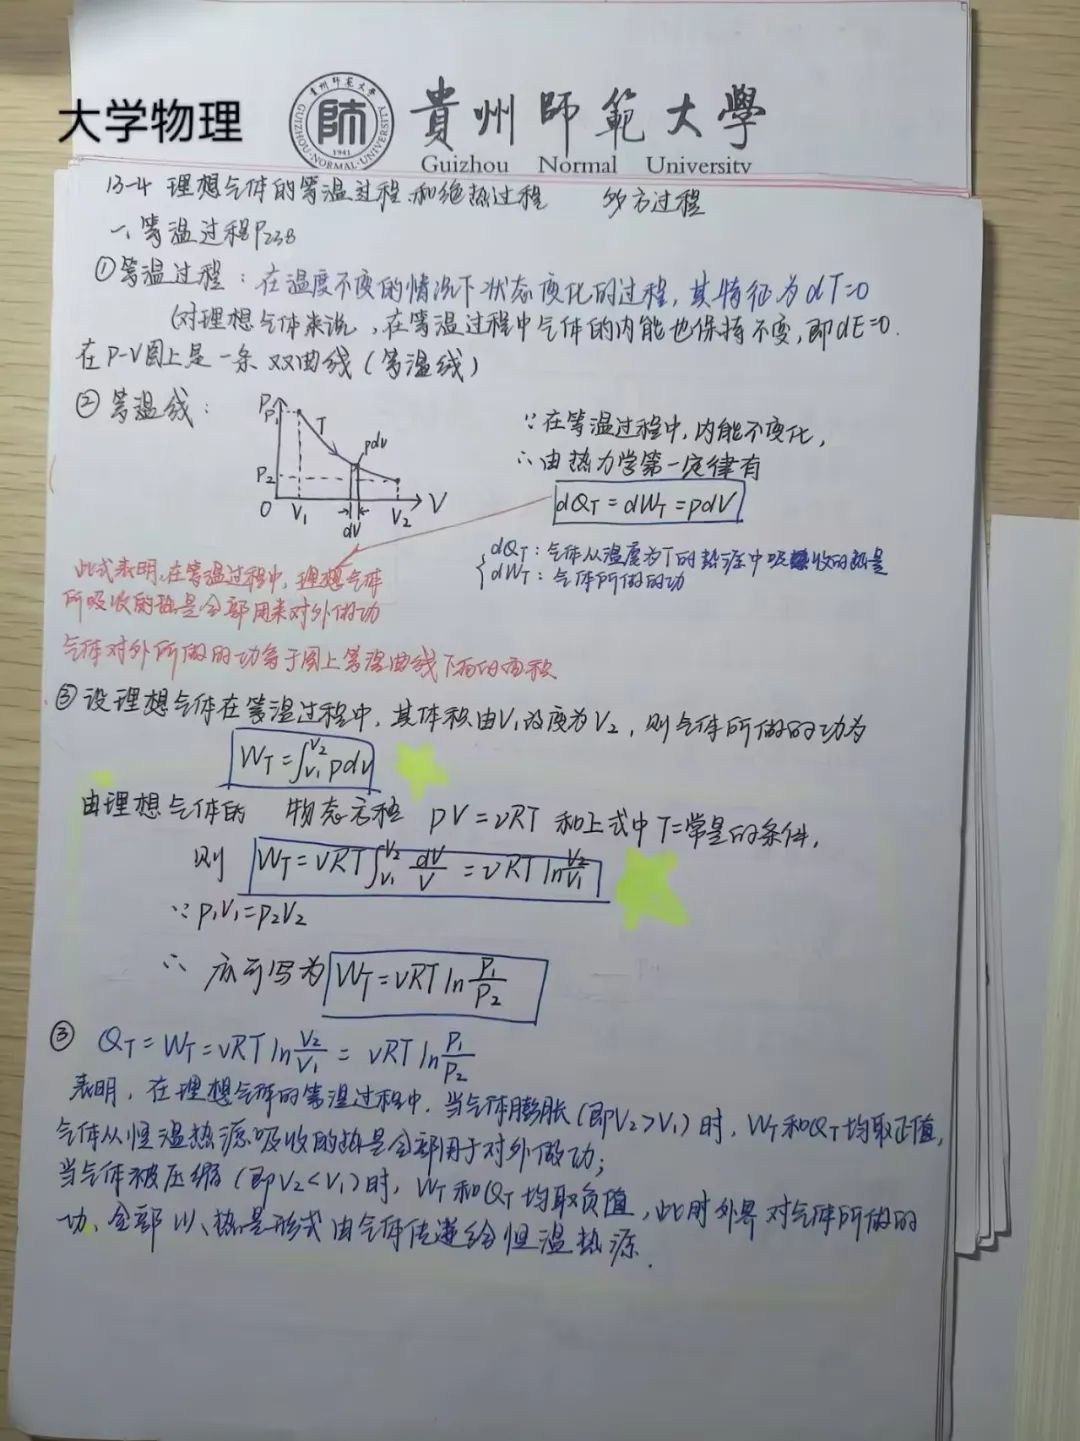 大学物理
貴州師範大學
Guizhou Normal University
貴州師范大學
師
1941
GUIZHOU·NORMAL·UNIVERSITY
13-4 理想气体的等温过程和绝热过程 多方过程
一、等温过程P238
①等温过程：在温度不变的情况下状态变化的过程，其特征为dT=0
(对理想气体来说，在等温过程中气体的内能也保持不变，即dE=0.
在P-V图上是一条双曲线(等温线)
②等温线：
P
P1
T
pdV
P2
O V1 dV V2 V
∵在等温过程中，内能不变化，
∴由热力学第一定律有
dQT=dWT=pdV
dQT：气体从温度为T的热源中吸收的热量
dWT：气体所做的功
此式表明，在等温过程中，理想气体
所吸收的热量全部用来对外做功
气体对外所做的功等于图上等温曲线下面的面积
③设理想气体在等温过程中，其体积由V1改变为V2，则气体所做的功为
WT=∫V1V2 pdV
由理想气体的 物态方程 pV=νRT 和上式中T=常量的条件，
则 WT=νRT∫V1V2 dV/V=νRT ln V2/V1
∵P1V1=P2V2
∴ 亦可写为 WT=νRT ln P1/P2
③ QT=WT=νRT ln V2/V1 = νRT ln P1/P2
表明，在理想气体的等温过程中，当气体膨胀(即V2>V1)时，WT和QT均取正值，
气体从恒温热源吸收的热量全部用于对外做功；
当气体被压缩(即V2<V1)时，WT和QT均取负值，此时外界对气体所做的
功、全部以热量形式由气体传递给恒温热源.